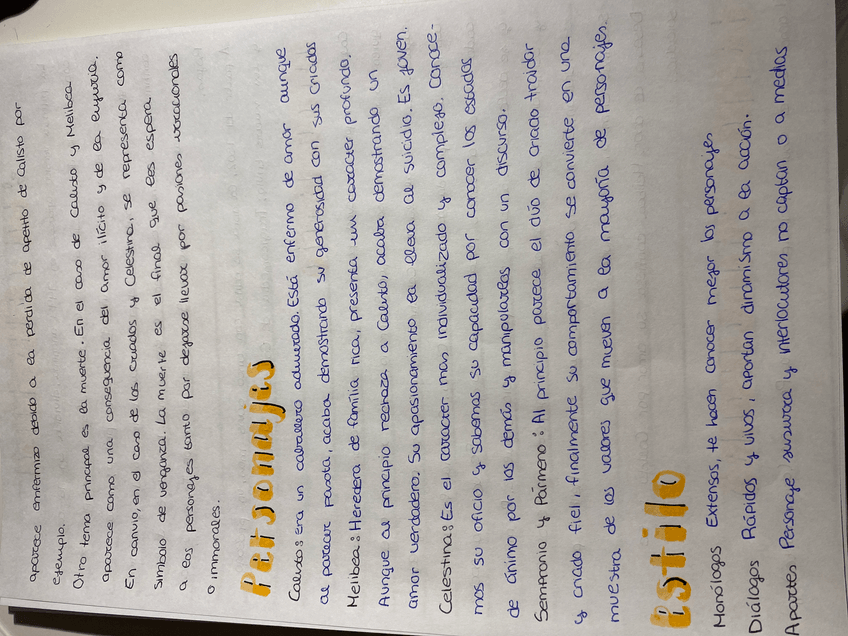 aparece enfermizo debido a la perdida de apetito de Calisto por
ejemplo.
Otro tema principal es la muerte. En el caso de Calisto y Melibea
aparece como una consequencia del amor ilícito y de la lujuria.
En canvio, en el caso de los criados y Celestina, se representa como
simbolo de venganza. La muerte es el final que les espera
a los personajes tanto por dejarse llevar por pasiones vocacionales
o immorales.
Personajes
Calisto: era un caballero adinerado. Está enfermo de amor aunque
al parecer parota, acaba demostrando su generosidad con sus criados
Melibea: Heredera de família rica, presenta un carácter profundo.
Aunque al principio rechaza a Calisto, acaba demostrando un
amor verdadero. Su apasionamiento la lleva al suicidio. Es joven.
Celestina: Es el carácter mas individualizado y complejo. Conoce-
mos su oficio y sabemos su capacidad por conocer los estados
de ánimo por los demás y manipularles con un discurso.
Sempronio y Pármeno: Al principio parece el dúo de criado traidor
y criado fiel, finalmente su comportamiento se convierte en una
muestra de los valores que mueven a la mayoría de personajes.
Estilo
Monólogos Extensos, te hacen conocer mejor los personajes
Diálogos Rápidos y vivos, aportan dinamismo a la acción.
Apartes Personaje susurra y interlocutores no captan o a medias